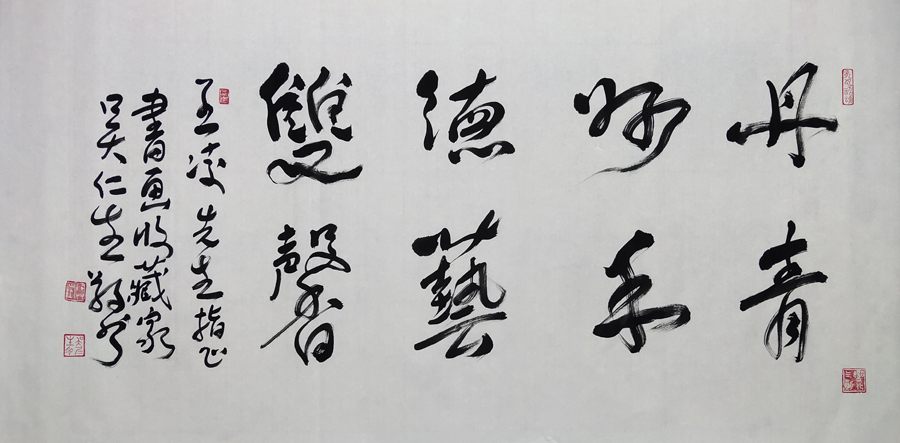 丹青
妙手
德藝
雙馨
凌先生指正
書画收藏家
吴仁生